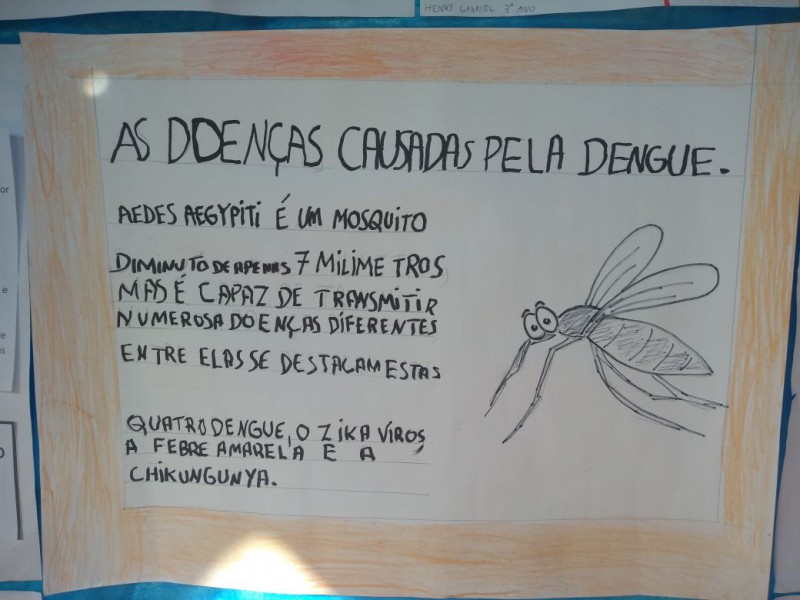 HENRY GABRIEL 3º ANO
AS DOENÇAS CAUSADAS PELA DENGUE.
AEDES AEGYPITI É UM MOSQUITO
DIMINUTO DE APENAS 7 MILIME TROS
MAS É CAPAZ DE TRANSMITIR
NUMEROSA DOENÇAS DIFERENTES
ENTRE ELAS SE DESTACAM ESTAS
QUATRO DENGUE, O ZIKA VIROS
A FEBRE AMARELA E A
CHIKUNGUNYA.